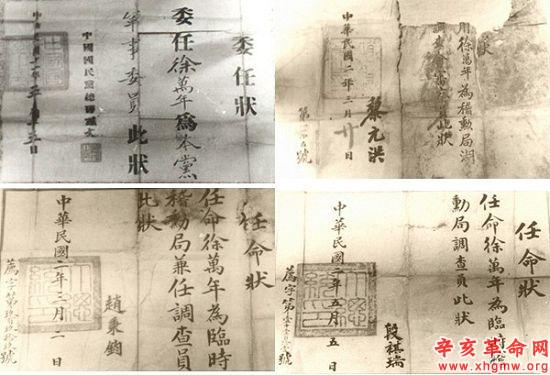 委任狀
委任徐萬年為本黨
軍事委員此狀
中國國民黨總理孫文
用徐萬年為稽勳局湖
此狀
中華民國二年三月廿日
黎元洪
任命狀
任命徐萬年為臨時
稽勳局兼任調查員
此狀
中華民國二年三月二日
趙秉鈞
任命狀
任命徐萬年為臨時稽
勳局調查員此狀
中華民國二年五月五日
段祺瑞
辛亥革命网
www.xhgmw.org